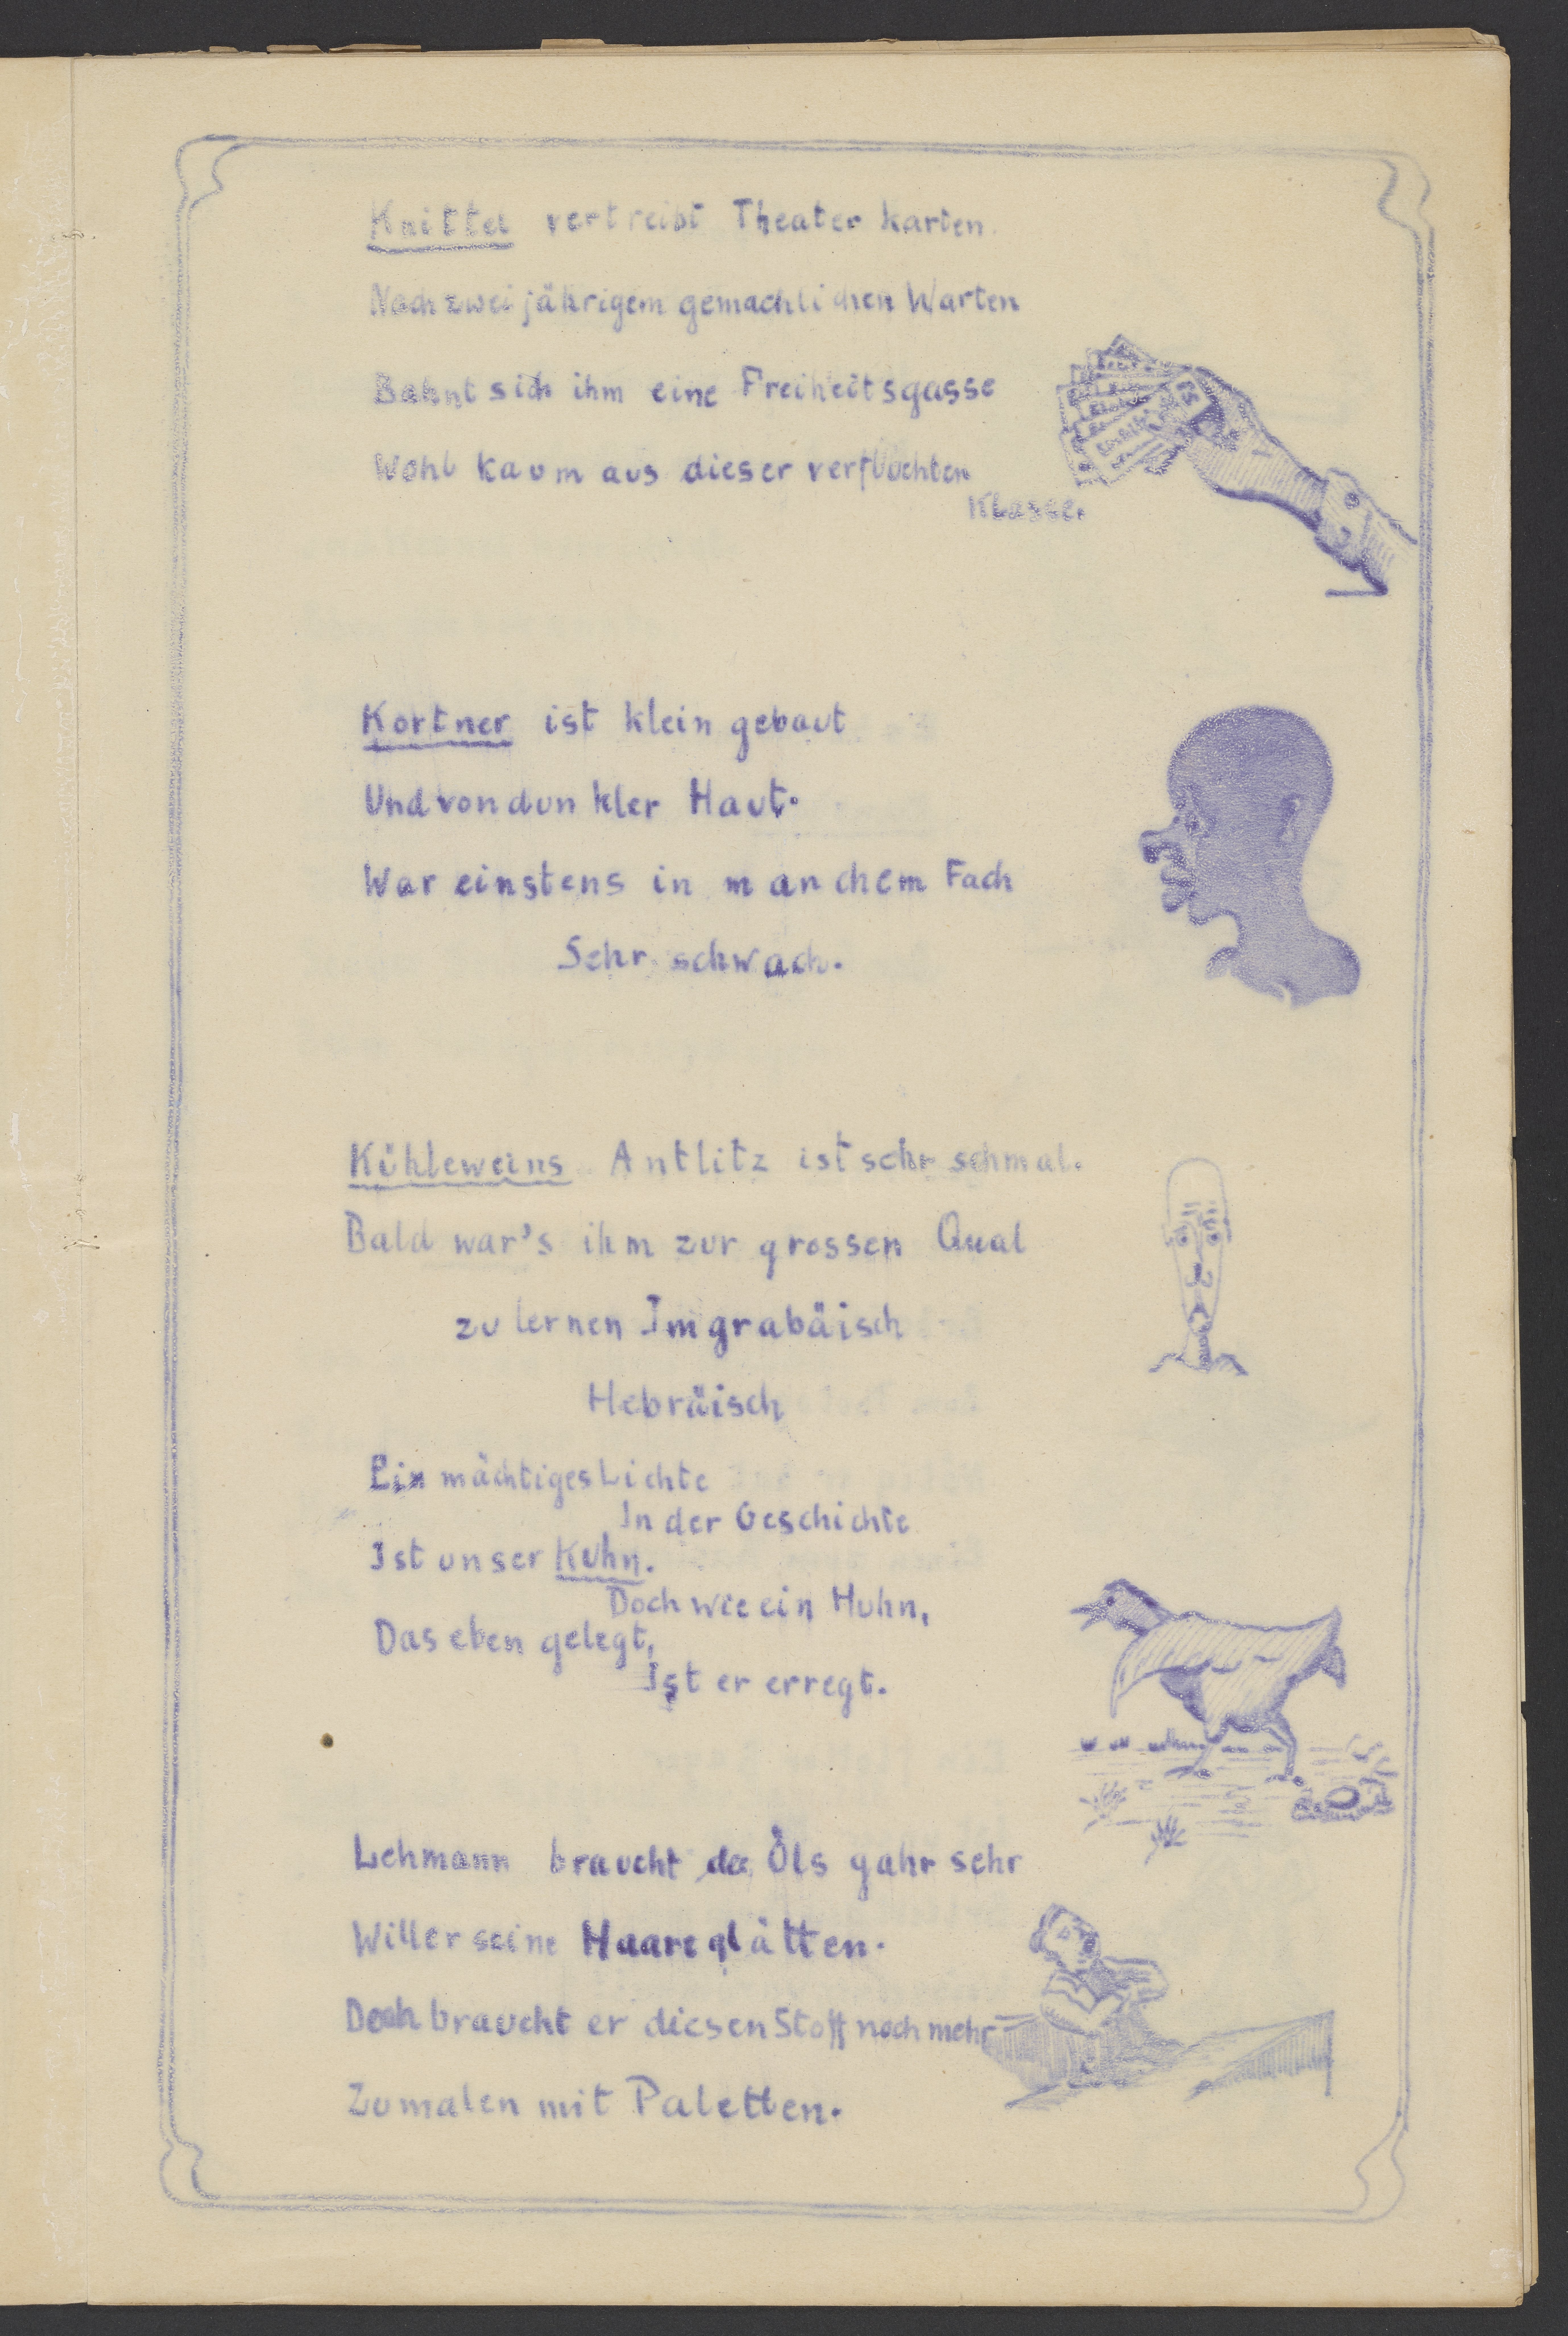 Knittel vertreibt Theaterkarten.
Nach zweijährigem gemachlichen Warten
Bahnt sich ihm eine Freiheitsgasse
Wohl kaum aus dieser verfluchten
Klasse.
Kortner ist klein gebaut
Und von dunkler Haut.
War einstens in manchem Fach
Sehr schwach.
Kühleweins Antlitz ist sehr schmal.
Bald war's ihm zur grossen Qual
zu lernen Imgrabäisch
Hebräisch
Ein mächtiges Lichte
In der Geschichte
Ist unser Kuhn.
Doch wie ein Huhn,
Das eben gelegt,
Ist er erregt.
Lehmann braucht des Öls gahr sehr
Will er seine Haare glätten.
Doch braucht er diesen Stoff noch mehr
Zu malen mit Paletten.